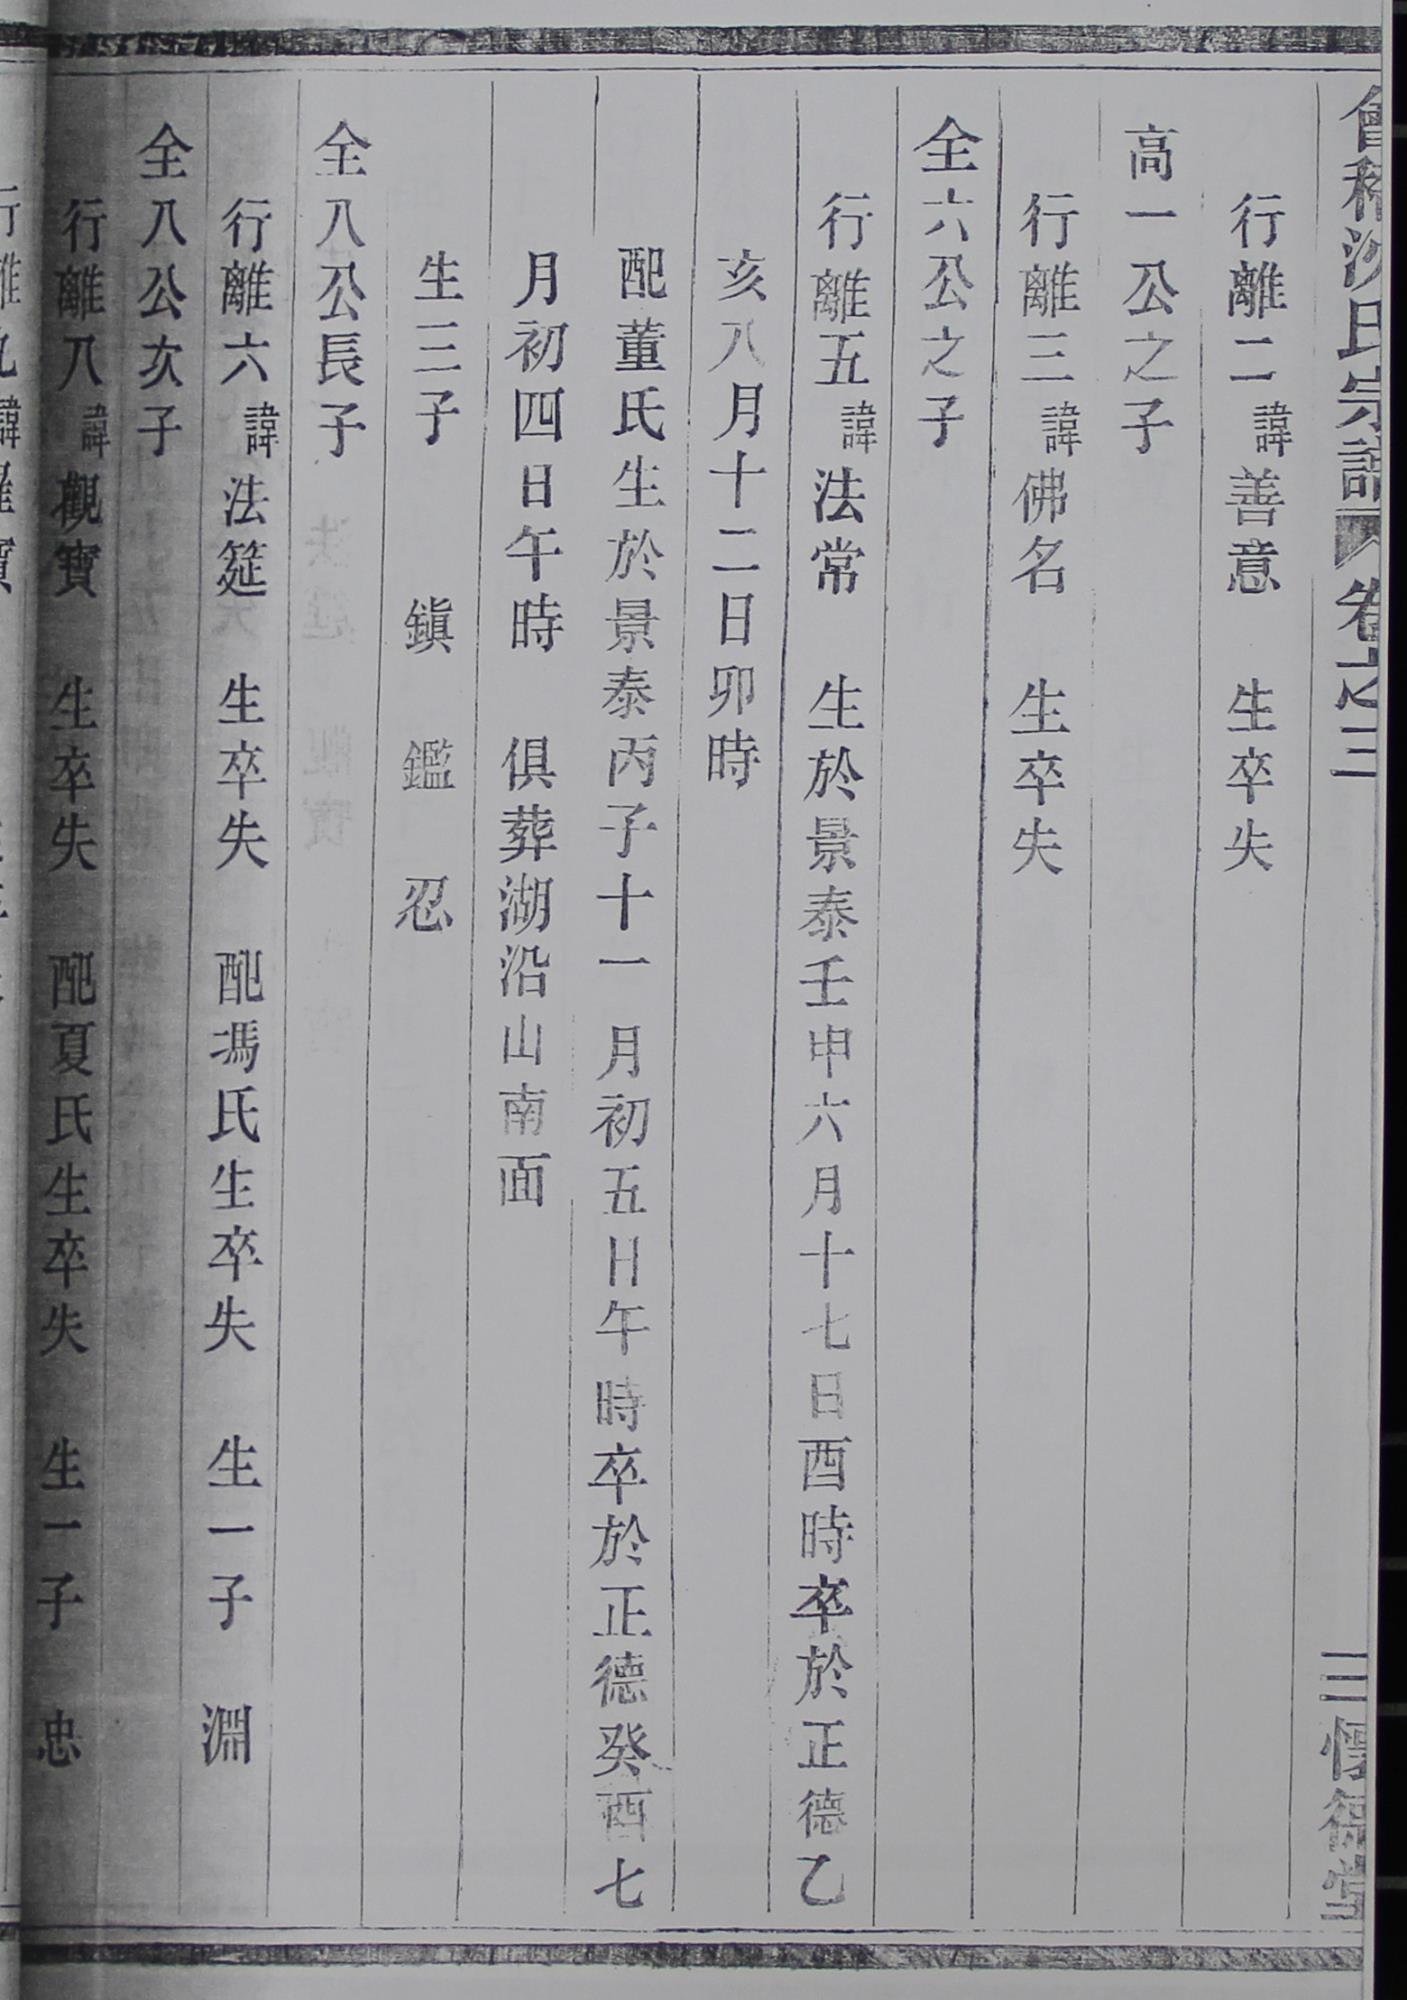 會稽沈氏宗譜 卷之三 三 懷德堂
行離二諱善意 生卒失
高一公之子
行離三諱佛名 生卒失
全六公之子
行離五諱法常 生於景泰壬申六月十七日酉時卒於正德乙
亥八月十二日卯時
配董氏生於景泰丙子十一月初五日午時卒於正德癸酉七
月初四日午時 俱葬湖沿山南面
生三子 鎭 鑑 忍
全八公長子
行離六諱法筵 生卒失 配馮氏生卒失 生一子 淵
全八公次子
行離八諱觀寶 生卒失 配夏氏生卒失 生一子 忠